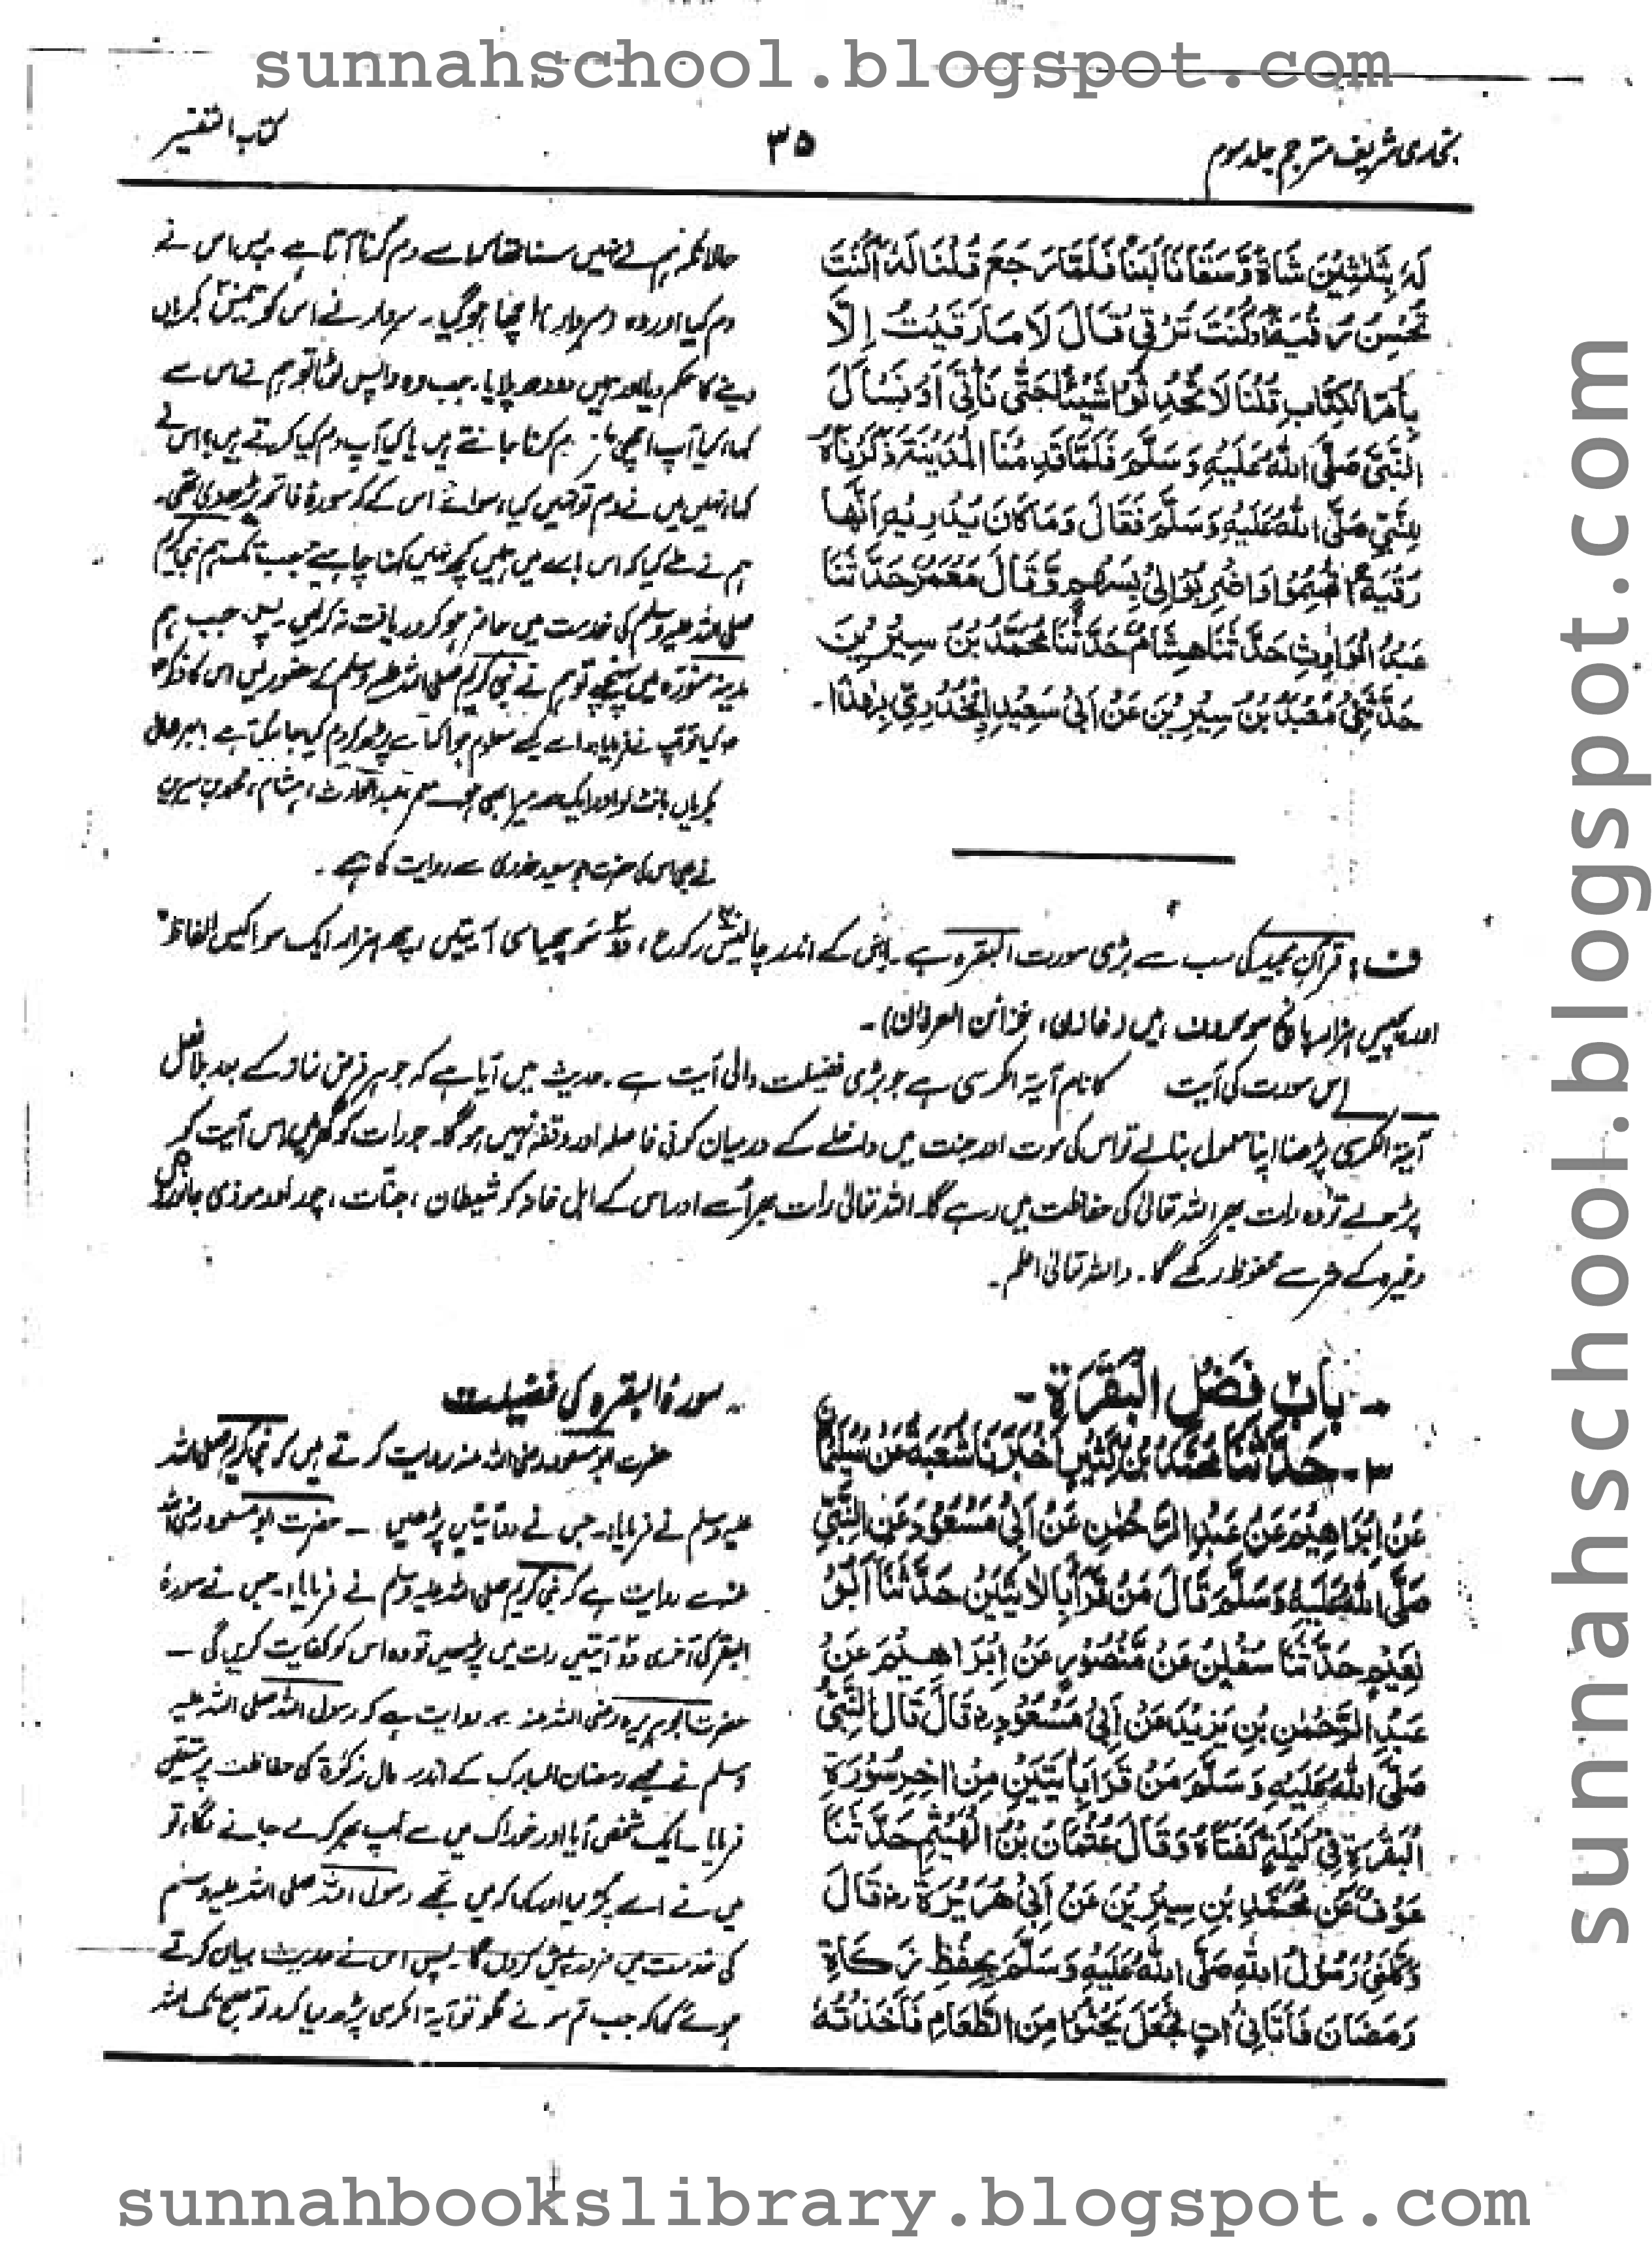 sunnahschool.blogspot.com
بخاری شریف مترجم جلد سوم
۳۵
کتاب التفسیر
لَهُ بِثَلٰثِيْنَ شَاةً وَّسَقَانَا لَبَنًا فَلَمَّا رَجَعَ قُلْنَا لَهُ اَكُنْتَ
تُحْسِنُ رُقْيَةً اَوْكُنْتَ تَرْقِيْ قَالَ لَا مَا رَقَيْتُ اِلَّا
بِاُمِّ الْكِتٰبِ قُلْنَا لَا تُحْدِثُوْا شَيْئًا حَتّٰى نَأْتِيَ اَوْ نَسْاَلَ
النَّبِيَّ صَلَّى اللهُ عَلَيْهِ وَسَلَّمَ فَلَمَّا قَدِمْنَا الْمَدِيْنَةَ ذَكَرْنَاهُ
لِلنَّبِيِّ صَلَّى اللهُ عَلَيْهِ وَسَلَّمَ فَقَالَ وَمَا كَانَ يُدْرِيْهِ اَنَّهَا
رُقْيَةٌ اقْسِمُوْا وَاضْرِبُوْا لِيْ بِسَهْمٍ وَّقَالَ مَعْمَرٌ حَدَّثَنَا
عَبْدُ الْوَارِثِ حَدَّثَنَا هِشَامٌ حَدَّثَنَا مُحَمَّدُ بْنُ سِيْرِيْنَ
حَدَّثَنِيْ مَعْبَدُ بْنُ سِيْرِيْنَ عَنْ اَبِيْ سَعِيْدِ الْخُدْرِيِّ بِهٰذَا۔
حالانکہ ہم نے نہیں سنا تھا کہ اسے دم کرنا آتا ہے پس اس نے
دم کیا اور وہ (سردار) اچھا ہوگیا۔ سردار نے اس کو تیس بکریاں
دینے کا حکم دیا اور ہمیں دودھ پلایا۔ جب وہ واپس لوٹا تو ہم نے اس سے
کہا، کیا آپ اچھی دم کرنا جانتے ہیں یا کیا آپ دم کیا کرتے ہیں؟ اس نے
کہا، نہیں میں نے دم تو نہیں کیا، سوائے اس کے کہ سورۂ فاتحہ پڑھ دی تھی۔
ہم نے طے کیا کہ اس بارے میں ہمیں کچھ نہیں کہنا چاہیے جب تک ہم نبی کریم
صلی اللہ علیہ وسلم کی خدمت میں حاضر ہوکر دریافت نہ کرلیں۔ پس جب ہم
مدینہ منورہ میں پہنچے تو ہم نے نبی کریم صلی اللہ علیہ وسلم کے حضور میں اس کا ذکر
کیا تو آپ نے فرمایا، اسے کیسے معلوم ہوا کہ اسے پڑھ کر دم کیا جاسکتا ہے؟ بہرحال
بکریاں بانٹ لو اور ایک حصہ میرا بھی معمر، عبدالوارث، ہشام، محمد بن سیرین
نے حضرت ابو سعید خدری سے روایت کی ہے۔
ف: قرآن مجید کی سب سے بڑی سورت البقرہ ہے۔ اس کے اندر چالیس رکوع، دو سو چھیاسی آیتیں، چھ ہزار ایک سو اکیس الفاظ
اور پچیس ہزار پانچ سو حروف ہیں (خازن، خزائن العرفان)۔
اس سورت کی آیت کا نام آیۃ الکرسی ہے جو بڑی فضیلت والی آیت ہے۔ حدیث میں آیا ہے کہ جو ہر فرض نماز کے بعد بلا فصل
آیۃ الکرسی پڑھنا اپنا معمول بنالے تو اس کی موت اور جنت میں داخلے کے درمیان کوئی فاصلہ اور وقفہ نہیں ہوگا۔ جو رات کو گھر میں اس آیت کو
پڑھ لے تو وہ رات بھر اللہ تعالیٰ کی حفاظت میں رہے گا۔ اللہ تعالیٰ رات بھر اُسے اور اس کے اہل خانہ کو شیطان، جنات، چور اور موذی جانوروں
وغیرہ کے شر سے محفوظ رکھے گا۔ واللہ تعالیٰ اعلم۔
۔ بَابُ فَضْلِ الْبَقَرَةِ۔
۳۔ حَدَّثَنَا مُحَمَّدُ بْنُ كَثِيْرٍ اَخْبَرَنَا شُعْبَةُ عَنْ سُلَيْمَانَ
عَنْ اِبْرَاهِيْمَ عَنْ عَبْدِ الرَّحْمٰنِ عَنْ اَبِيْ مَسْعُوْدٍ عَنِ النَّبِيِّ
صَلَّى اللهُ عَلَيْهِ وَسَلَّمَ قَالَ مَنْ قَرَأَ بِالْاٰيَتَيْنِ حَدَّثَنَا اَبُوْ
نُعَيْمٍ حَدَّثَنَا سُفْيٰنُ عَنْ مَّنْصُوْرٍ عَنْ اِبْرَاهِيْمَ عَنْ
عَبْدِ الرَّحْمٰنِ بْنِ يَزِيْدَ عَنْ اَبِيْ مَسْعُوْدٍ قَالَ قَالَ النَّبِيُّ
صَلَّى اللهُ عَلَيْهِ وَسَلَّمَ مَنْ قَرَأَ بِاٰيَتَيْنِ مِنْ اٰخِرِ سُوْرَةِ
الْبَقَرَةِ فِيْ لَيْلَةٍ كَفَتَاهُ وَقَالَ عُثْمَانُ بْنُ الْهَيْثَمِ حَدَّثَنَا
عَوْفٌ عَنْ مُحَمَّدِ بْنِ سِيْرِيْنَ عَنْ اَبِيْ هُرَيْرَةَ رض قَالَ
وَكَّلَنِيْ رَسُوْلُ اللهِ صَلَّى اللهُ عَلَيْهِ وَسَلَّمَ بِحِفْظِ زَكَاةِ
رَمَضَانَ فَاَتَانِيْ اٰتٍ فَجَعَلَ يَحْثُوْا مِنَ الطَّعَامِ فَاَخَذْتُهُ
۔ سورۃ البقرہ کی فضیلت
حضرت ابو مسعود رضی اللہ عنہ روایت کرتے ہیں کہ نبی کریم صلی اللہ
علیہ وسلم نے فرمایا:۔ جس نے دو آیتیں پڑھیں ۔ حضرت ابو مسعود رضی اللہ
عنہ سے روایت ہے کہ نبی کریم صلی اللہ علیہ وسلم نے فرمایا:۔ جس نے سورۂ
البقر کی آخری دو آیتیں رات میں پڑھیں تو وہ اس کو کفایت کریں گی ۔
حضرت ابوہریرہ رضی اللہ عنہ سے روایت ہے کہ رسول اللہ صلی اللہ علیہ
وسلم نے مجھے رمضان المبارک کے اندر مال زکوٰۃ کی حفاظت پر متعین
فرمایا۔ ایک شخص آیا اور خوراک میں سے لپ بھر کر لے جانے لگا، تو
میں نے اسے پکڑ لیا اور کہا کہ میں تجھے رسول اللہ صلی اللہ علیہ وسلم
کی خدمت میں ضرور پیش کروں گا۔ پس اس نے حدیث بیان کرتے
ہوئے کہا کہ جب تم سونے لگو تو آیۃ الکرسی پڑھ لیا کرو تو صبح تک اللہ
sunnahschool.blogspot.com
sunnahbookslibrary.blogspot.com